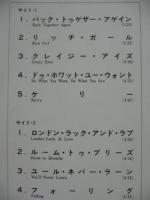 サイド-1
1. バック・トゥゲザー・アゲイン
Back Together Again
2. リッチ・ガール
Rich Girl
3. クレイジー・アイズ
Crazy Eyes
4. ドゥ・ホワット・ユー・ウォント
Do What You Want, Be What You Are
5. ケリー
Kerry
サイド-2
1. ロンドン・ラック・アンド・ラブ
London Luck, & Love
2. ルーム・トゥ・ブリーズ
Room to Breathe
3. ユール・ネバー・ラーン
You'll Never Learn
4. フォーリング
Falling